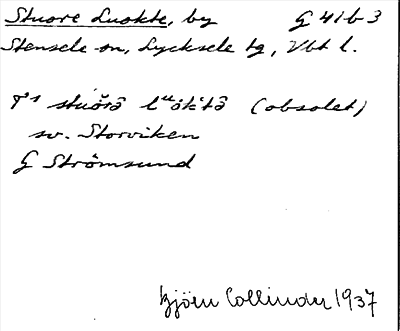 Stuore Luokte, by G 41b3
Stensele sn, Lycksele tg, Vbt l.
stuōrā luoktā (obsolet)
sv. Storviken
G Strömsund
Björn Collinder 1937